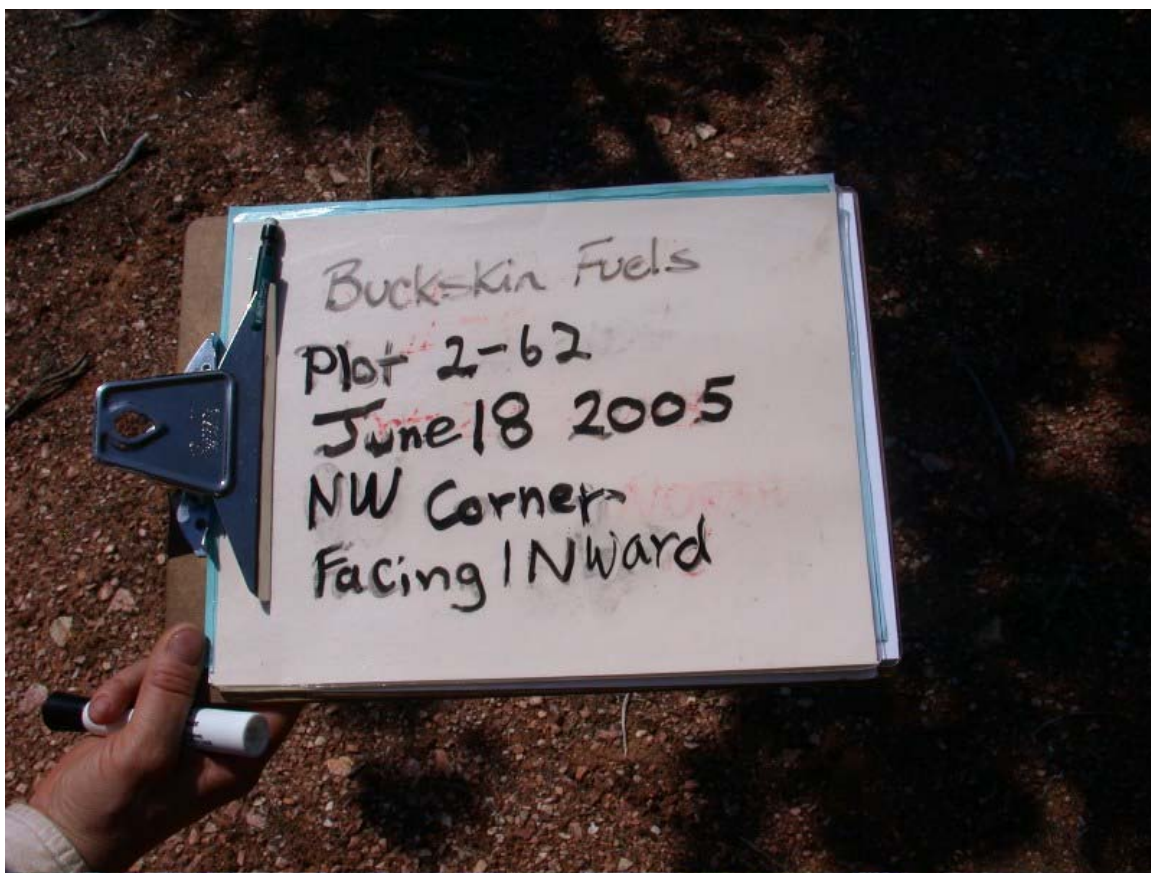 Buckskin Fuels
Plot 2-62
June 18 2005
NW Corner
Facing INward